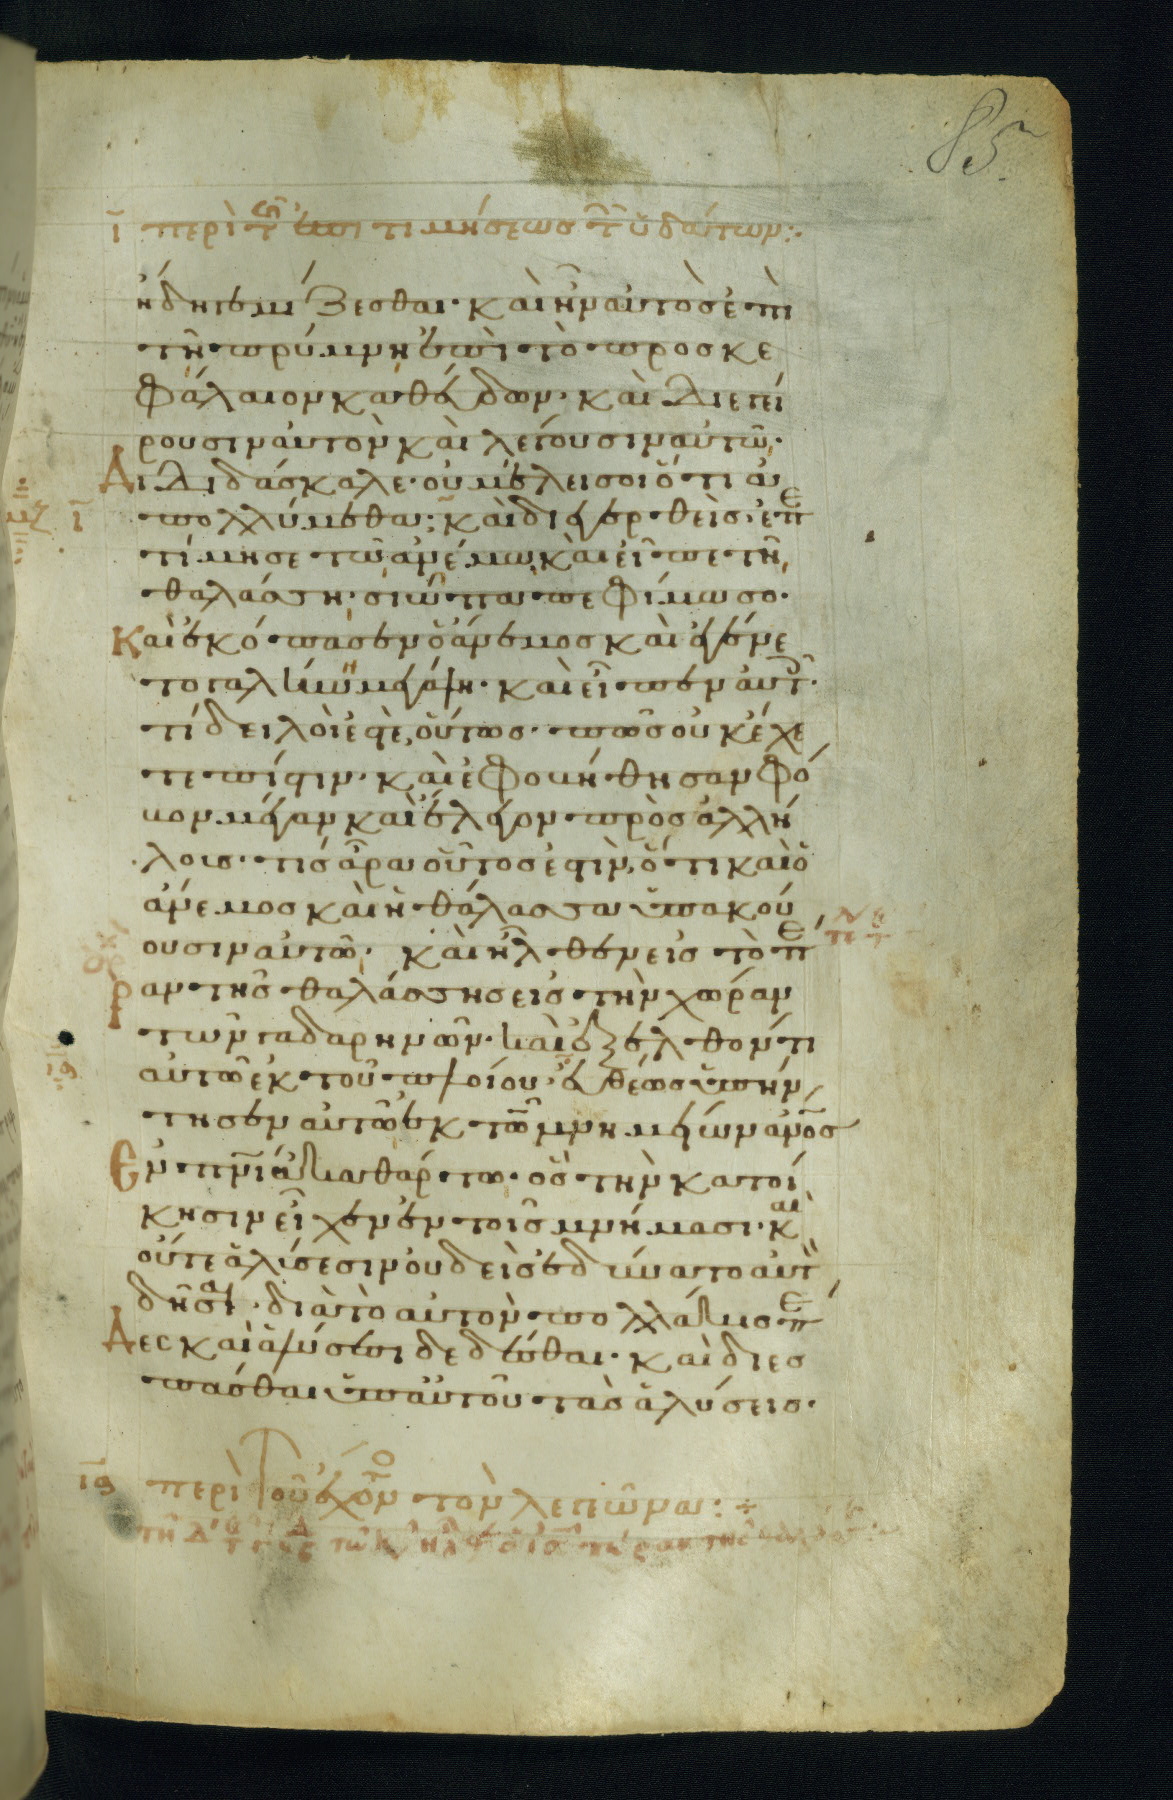 85
ι περὶ τῆς ἐπιτιμήσεως τῶν ὑδάτων:
ἤδη γεμίζεσθαι· καὶ ἦν αὐτὸς ἐπὶ
τῆ πρύμνη ἐπὶ τὸ προσκε
φάλαιον καθεύδων· καὶ διεγεί
ρουσιν αὐτὸν καὶ λέγουσιν αὐτῶ·
Διδάσκαλε· οὐ μέλει σοι ὅτι ἀ
πολλύμεθα; καὶ διεγερθεὶς ἐπε
τίμησε τῶ ἀνέμω, καὶ εἶπε τῆ
θαλάσση· σιώπα πεφίμωσο·
Καὶ ἐκόπασεν ὁ ἄνεμος καὶ ἐγένε
το γαλήνη μεγάλη· καὶ εἶπεν αὐτοῖς·
τί δειλοί ἐστε οὕτως· πῶς οὐκ ἔχε
τε πίστιν· καὶ ἐφοβήθησαν φό
βον μέγαν καὶ ἔλεγον πρὸς ἀλλή
λους· τίς ἄρα οὗτος ἐστὶν, ὅτι καὶ ὁ
ἄνεμος καὶ ἡ θάλασσα ὑπακού
ουσιν αὐτῶ· καὶ ἦλθεν εἰς τὸ πέ
ραν τῆς θαλάσσης εἰς τὴν χώραν
τῶν γαδαρηνῶν· καὶ ἐξελθόντι
αὐτῶ ἐκ τοῦ πλοίου· εὐθέως ὑπήν
τησεν αὐτῶ ἐκ τῶν μνημείων ἄνος
Ἐν πνι ἀκαθάρτω· ὃς τὴν κατοί
κησιν εἶχεν ἐν τοῖς μνήμασι· καὶ
οὔτε ἁλύσεσιν οὐδεὶς ἐδύνατο αὐτὸν
δῆσαι· διὰ τὸ αὐτὸν πολλάκις πέ
Δες καὶ ἁλύσεσι δεδέσθαι· καὶ διεσ
πάσθαι ὑπ' αὐτοῦ τὰς ἁλύσεις·
ια περὶ τοῦ ἔχοντος τὸν λεγεῶνα: